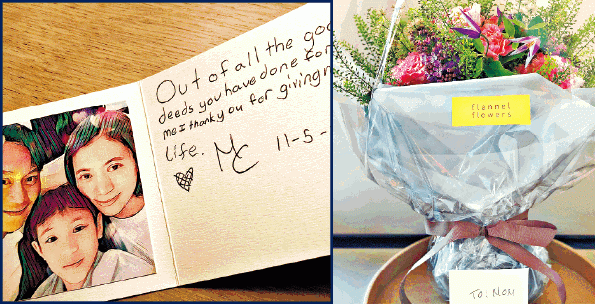 Out of all the goo
deeds you have done for
me I thank you for giving m
life.
MC 11-5-
flannel
flowers
TO: MOM